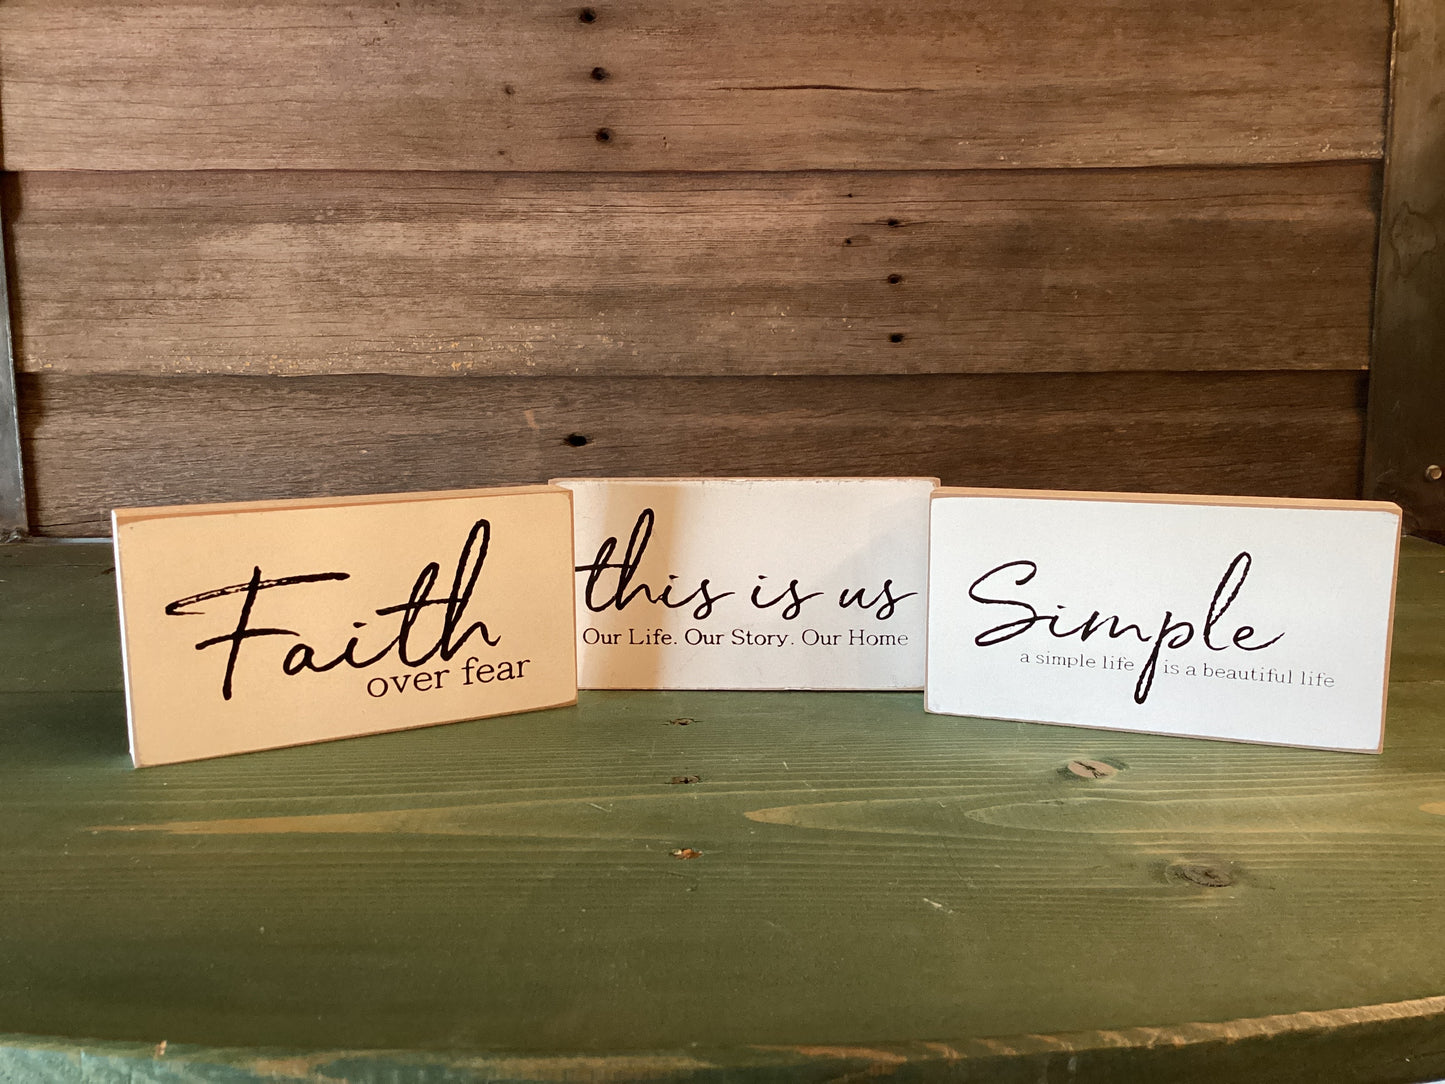 Faith
over fear
this is us
Our Life. Our Story. Our Home
Simple
a simple life is a beautiful life